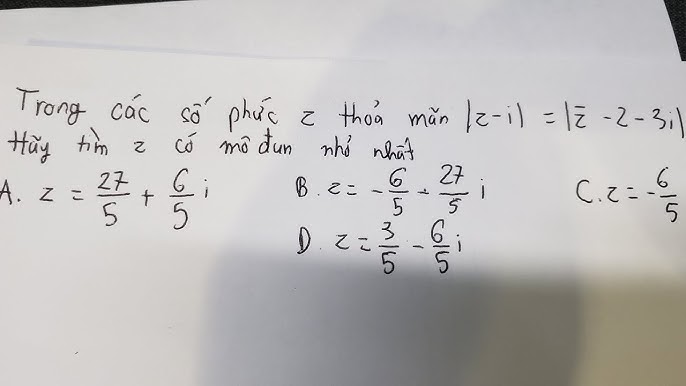 Trong các số phức z thỏa mãn |z-i| = |z̄ -2-3i|
Hãy tìm z có mô đun nhỏ nhất
A. z = 27/5 + 6/5 i B. z = -6/5 - 27/5 i C. z = -6/5
D. z = 3/5 - 6/5 i